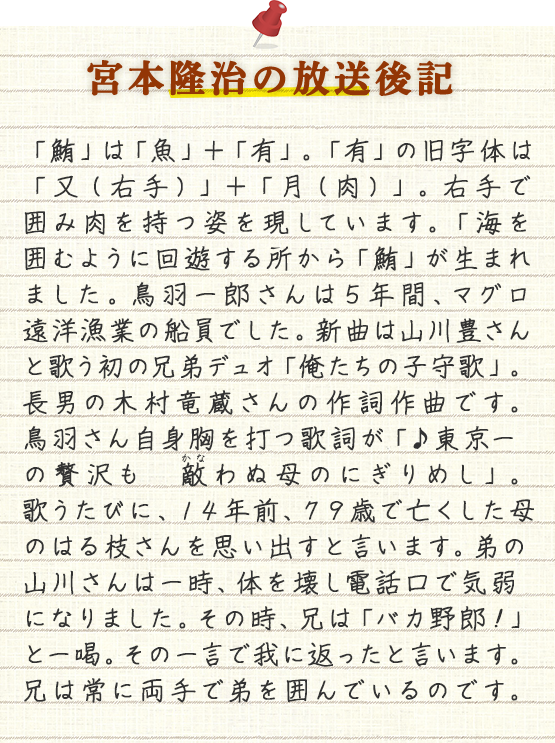 宮本隆治の放送後記
「鮪」は「魚」＋「有」。「有」の旧字体は
「又（右手）」＋「月（肉）」。右手で
囲み肉を持つ姿を現しています。「海を
囲むように回遊する所から「鮪」が生まれ
ました。鳥羽一郎さんは５年間、マグロ
遠洋漁業の船員でした。新曲は山川豊さん
と歌う初の兄弟デュオ「俺たちの子守歌」。
長男の木村竜蔵さんの作詞作曲です。
鳥羽さん自身胸を打つ歌詞が「♪東京一
の贅沢も　敵わぬ母のにぎりめし」。
かな
歌うたびに、１４年前、７９歳で亡くした母
のはる枝さんを思い出すと言います。弟の
山川さんは一時、体を壊し電話口で気弱
になりました。その時、兄は「バカ野郎！」
と一喝。その一言で我に返ったと言います。
兄は常に両手で弟を囲んでいるのです。